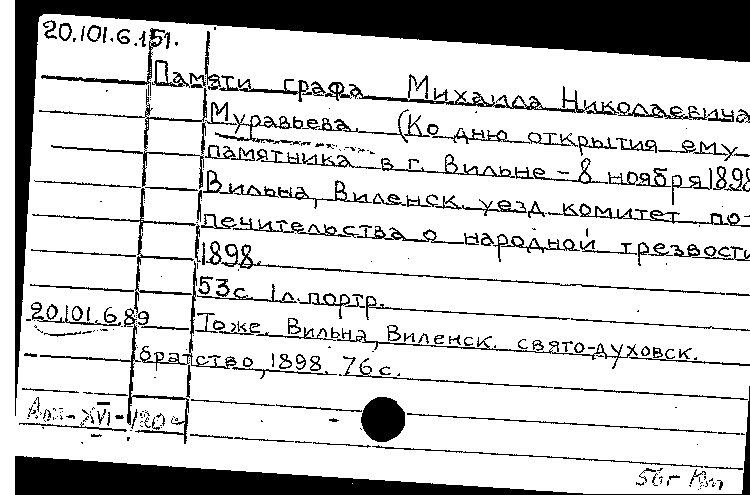 20.101.6.151.
Памяти графа Михаила Николаевича
Муравьева. (Ко дню открытия ему
памятника в г. Вильне - 8 ноября 1898
Вильна, Виленск. уезд. комитет по-
печительства о народной трезвости
1898.
53с. 1л. портр.
20.101.6.89 Тоже. Вильна, Виленск. свято-духовск.
братство, 1898. 76с.
XVI-120
56г